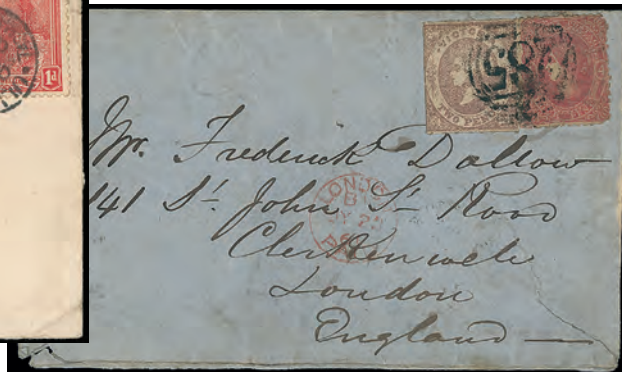 1d
VICTO
TWO PENCE
Mr. Frederick Dallow
141 St. John St. Road
Clerkenwell
London
England
LONDO